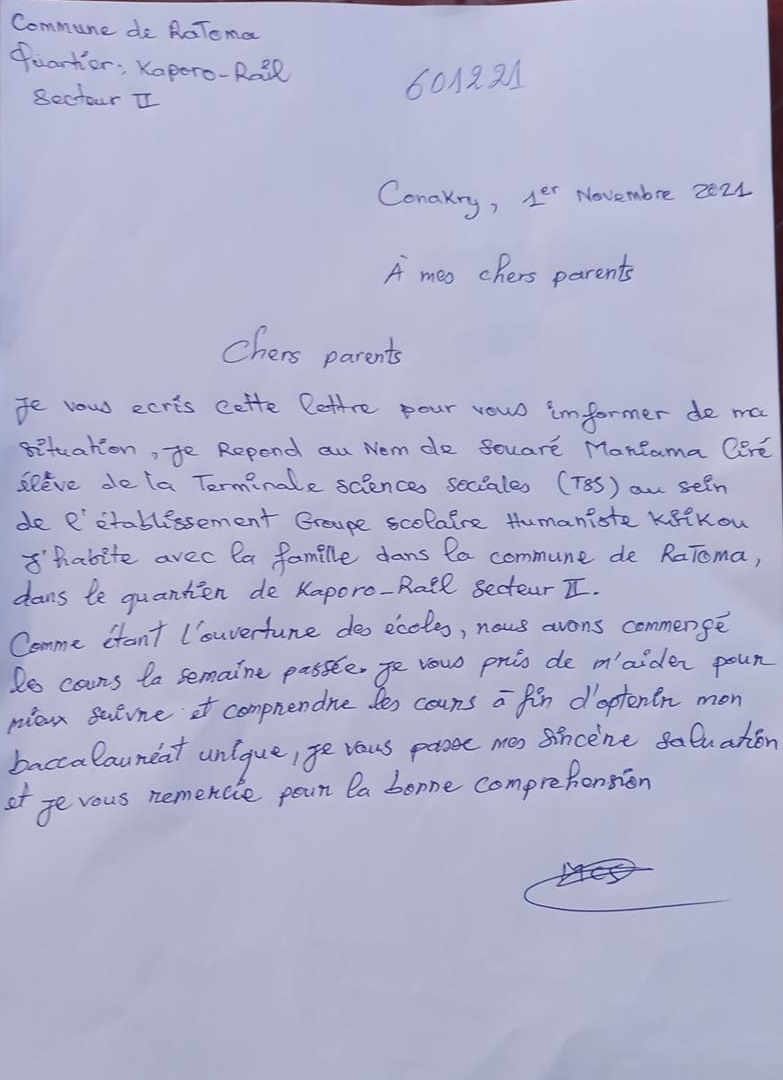 Commune de RaToma
Quartier: Kaporo-Rail
Secteur II
601221
Conakry, 1er Novembre 2021
À mes chers parents
Chers parents
Je vous ecris cette lettre pour vous imformer de ma
situation, je Repond au Nom de Souaré Mariama Ciré
élève de la Terminale sciences sociales (TSS) au sein
de l'établissement Groupe scolaire Humaniste Ksikou
J'habite avec la famille dans la commune de RaToma,
dans le quartier de Kaporo-Rail Secteur II.
Comme étant l'ouverture des écoles, nous avons commengé
les cours la semaine passée. je vous pris de m'aider pour
mieux suivre et comprendre les cours à fin d'optenir mon
baccalauréat unique, je vous passe mes sincère saluation
et je vous remercie pour la bonne comprehension